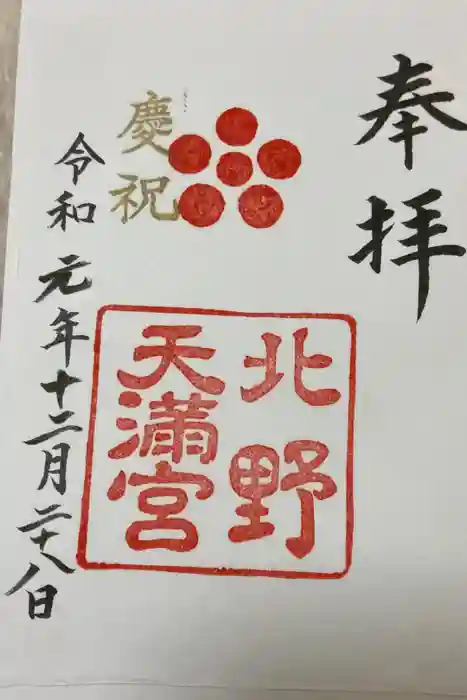 奉拝
慶祝
北野
天満宮
令和元年十二月二十八日